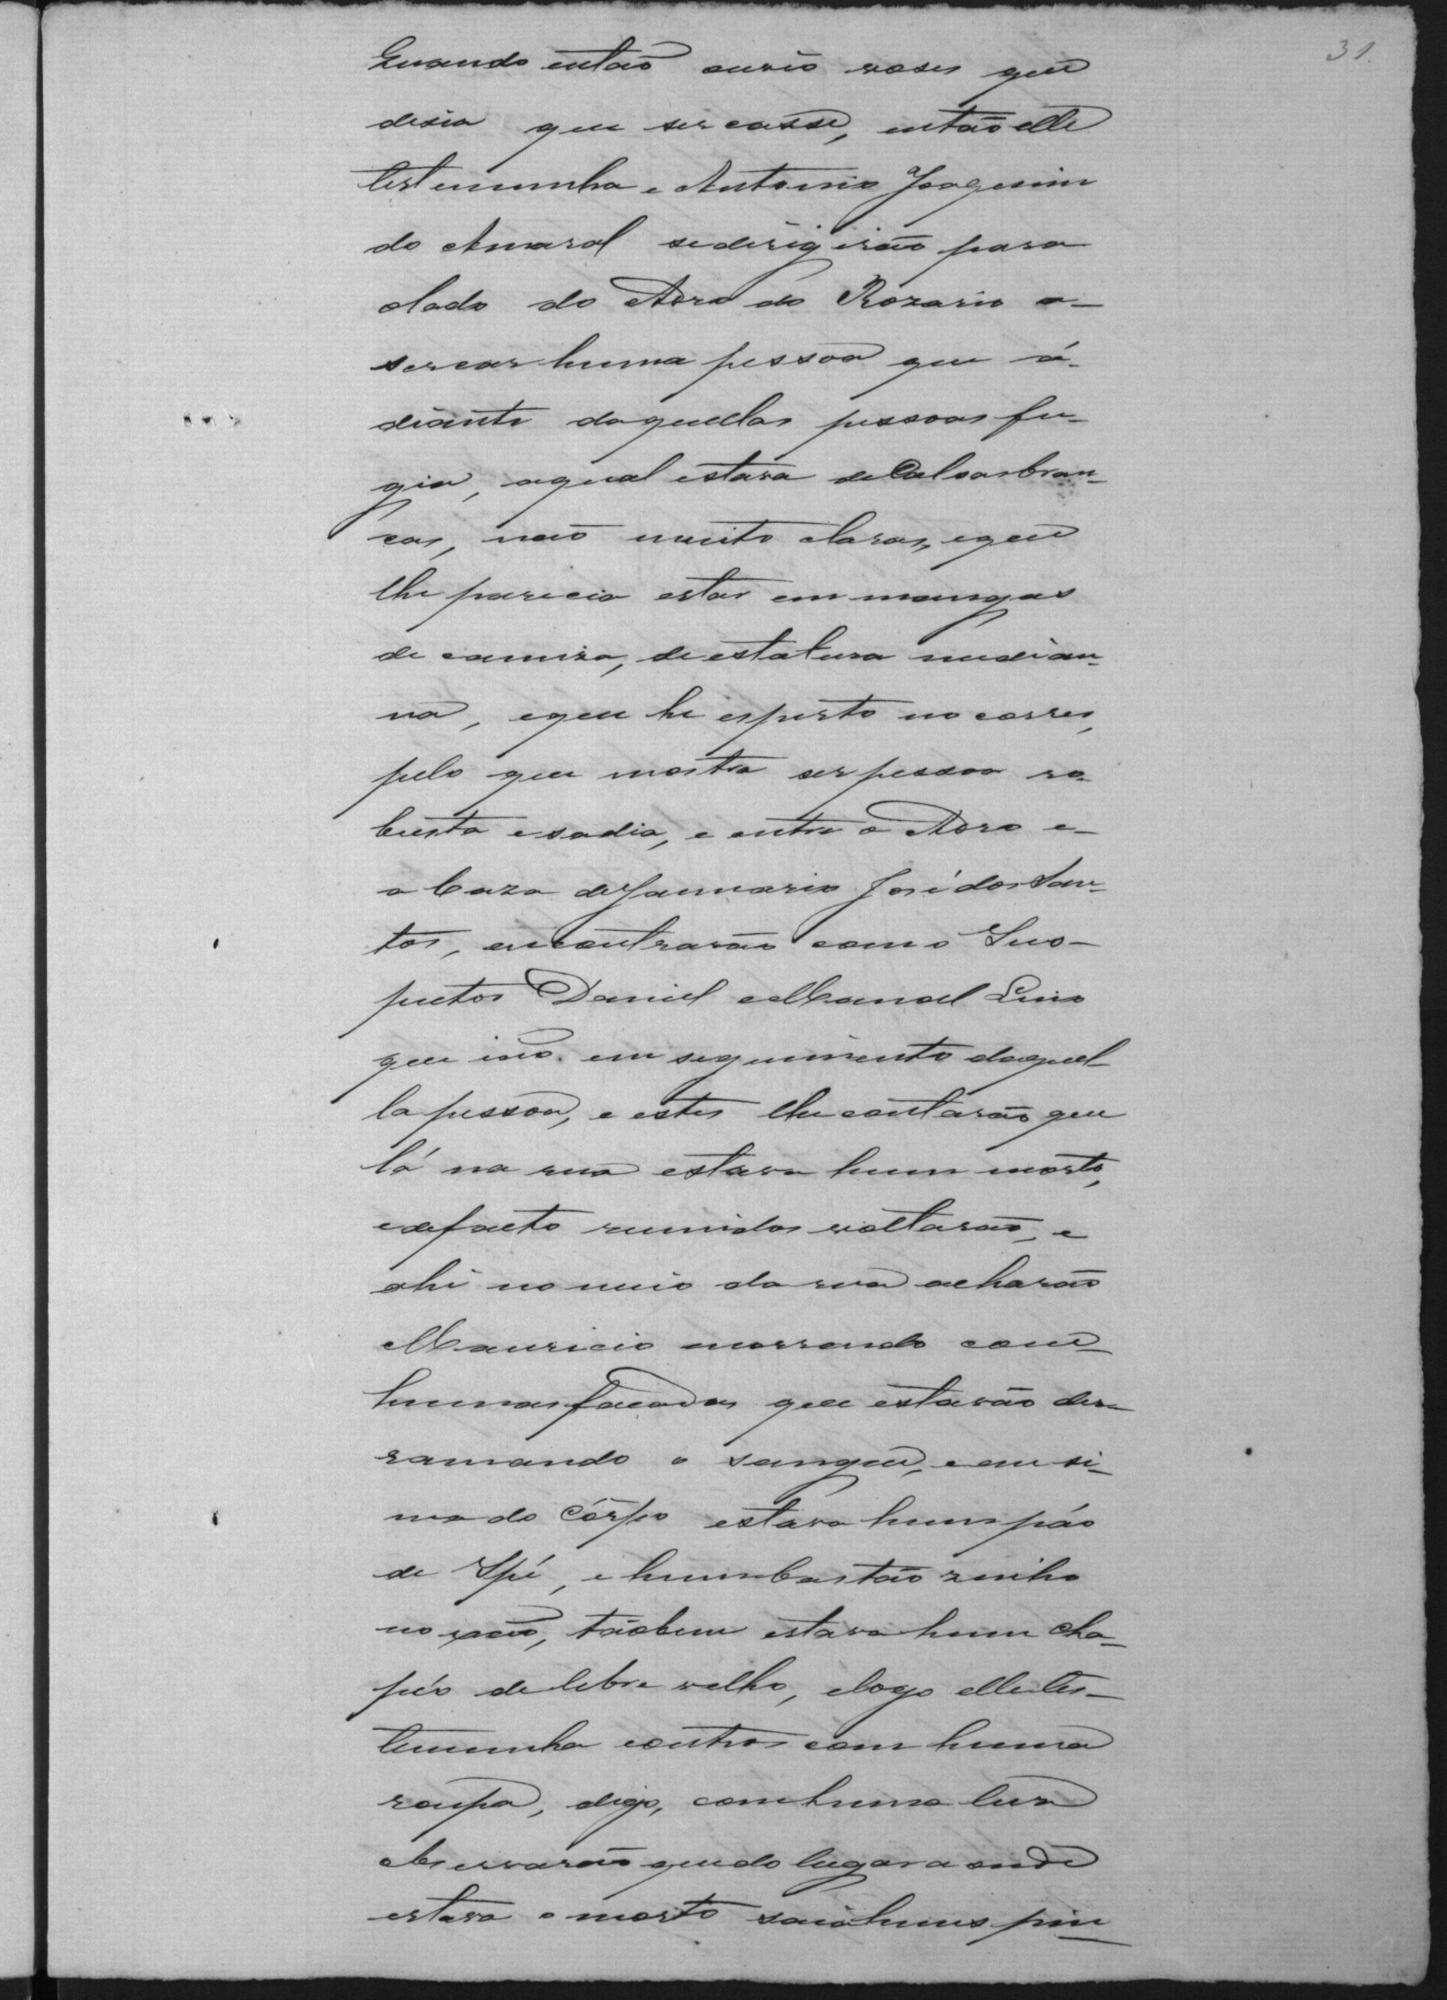 31.
Quando então ouvio vozes que
desia que sercasse, então elle
testemunha e Antonio Joaquim
do Amaral sedirigirão para
olado do Adro do Rozario a-
sercar huma pessoa que a-
diante daquellas pessoas fu-
gia, aqual estava deCalsas bran-
cas, não muito claras, eque
lhe parecia estar em mangas
de camiza, de estatura median-
na, eque he esperto no correr,
pelo que mostra ser pessoa ro-
busta esadia, e entre o Adro e-
a Caza deJannuario José dos San-
tos, encontrarão com o Sus-
peitos Daniel eManoel Luis
que ião em seguimento daquel-
la pessoa, e estes lhe contarão que
lá na rua estava hum morto,
edefacto reunidos voltarão, e
ahi no meio da rua acharão
Mauricio morrendo com
humas facadas que estavão der-
ramando o sangue, e em si-
ma do Côrpo estava hum páo
de Ipé, e hum bastão zinho
no chão, tãobem estava hum Cha-
péo de lebre velho, elogo elle tes-
temunha eoutros com huma
roupa, digo, com huma luz
observarão que do lugar a onde
estava o morto saia huns pin-